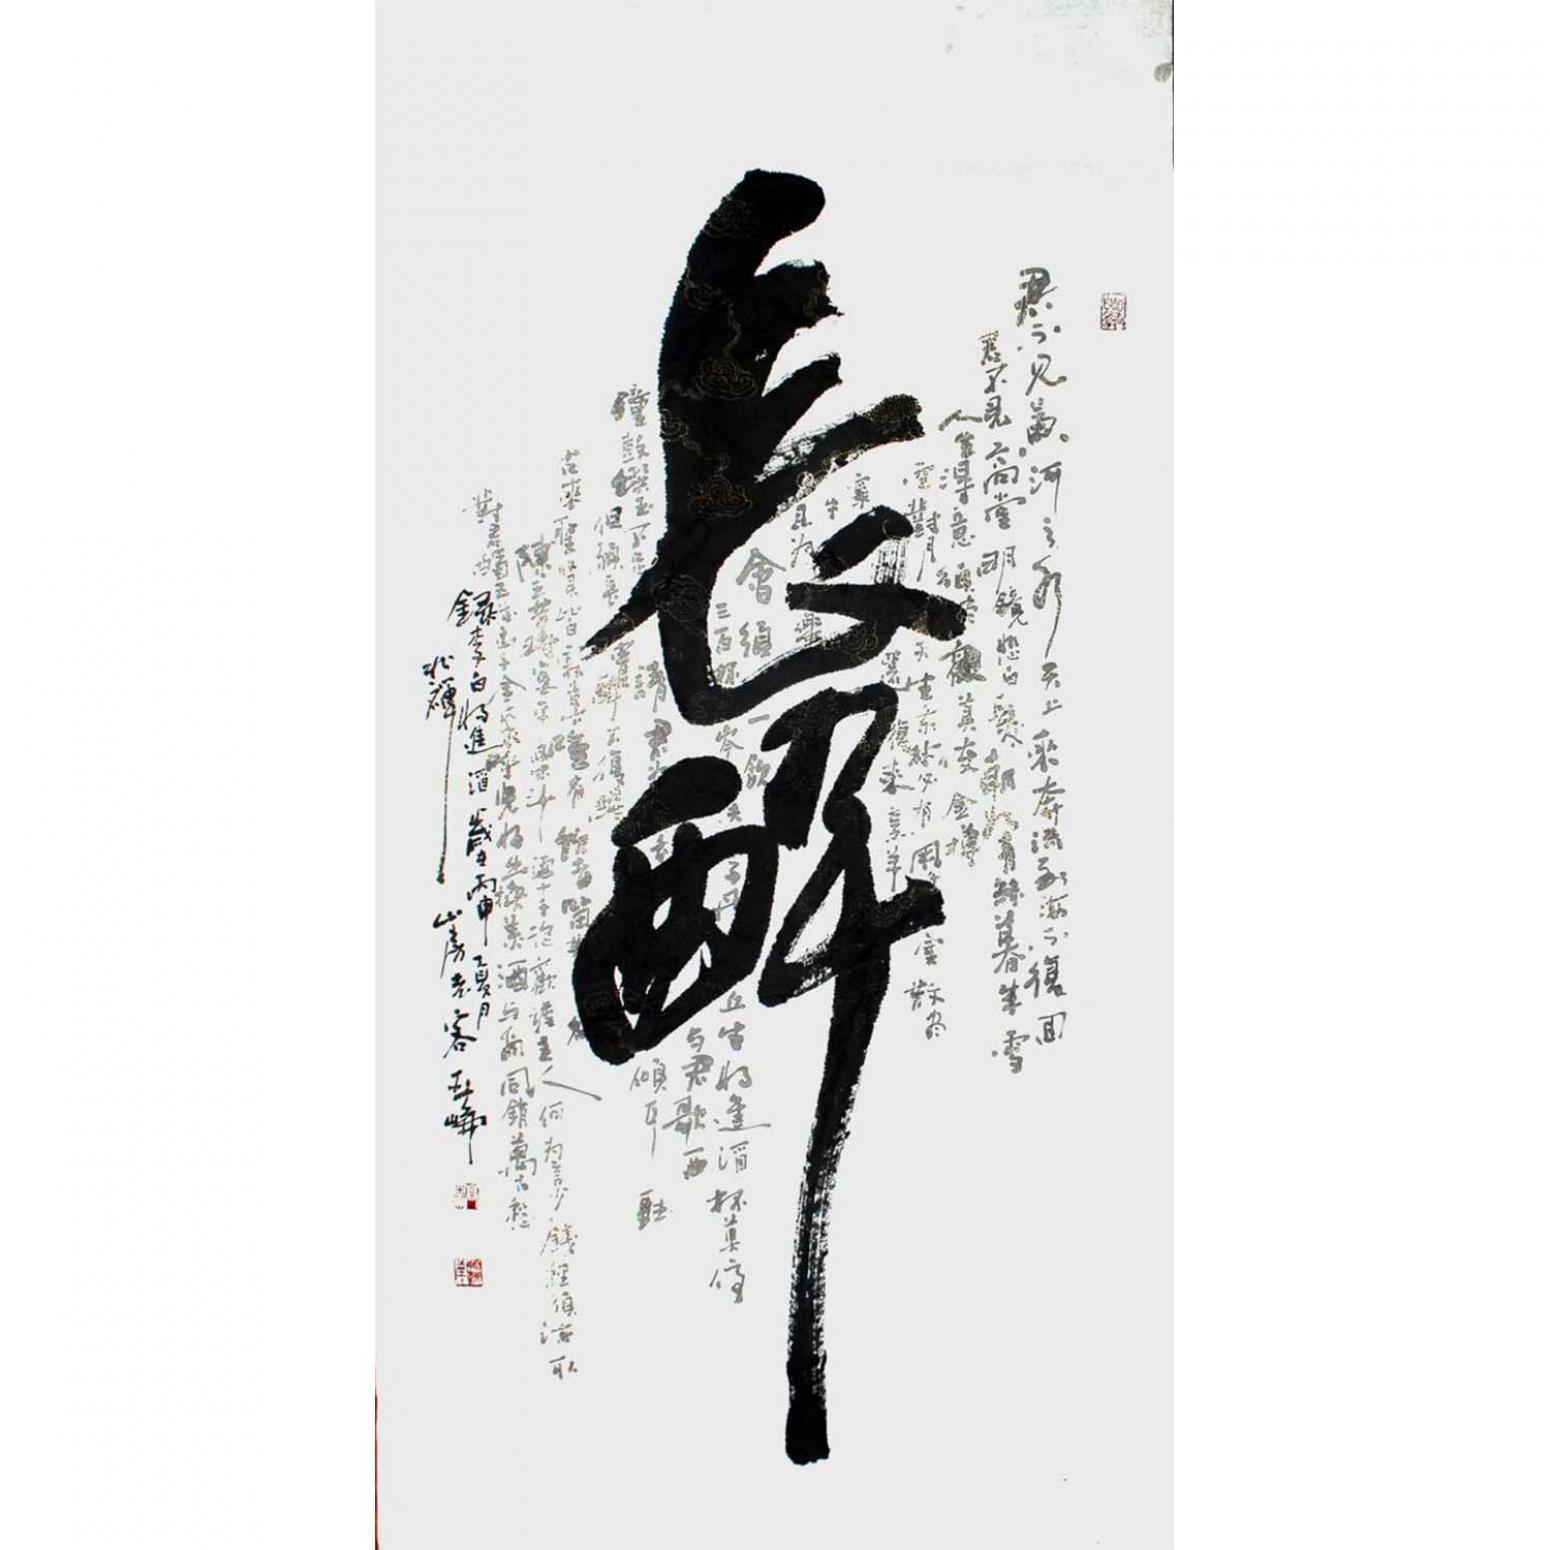 長醉
君不見黃河之水天上來奔流到海不復回
君不見高堂明鏡悲白髮朝如青絲暮成雪
人生得意須盡歡莫使金樽
空對月天生我材必有用 金散盡
還復來烹羊
宰牛
且為樂
會須一飲
三百杯岑夫子丹丘生將進酒杯莫停
與君歌一
請君為 傾耳聽
鐘鼓饌玉不足
但願長醉不復醒
古來聖賢皆寂寞惟有飲者留其名
陳王昔時宴平樂斗酒十千恣歡謔主人何為言少錢徑須沽取
對君酌五花馬千金裘呼兒將出換美酒與爾同銷萬古愁
錄李白將進酒歲在丙申夏月
山房老客